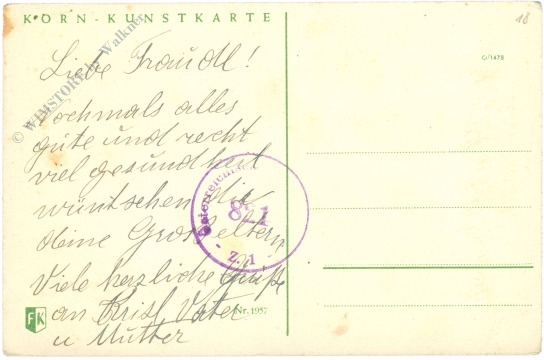 KORN - KUNSTKARTE
18
G/1478
© WIMSTORE by Walkner
Liebe Fraudl!
nochmals alles
gute und recht
viel gesundheit
wüntschen dir
deine Grosseltern
Viele herzliche Grüße
an Kristl Vater
u Mutter
821
Z. 1
FK
Nr. 1957